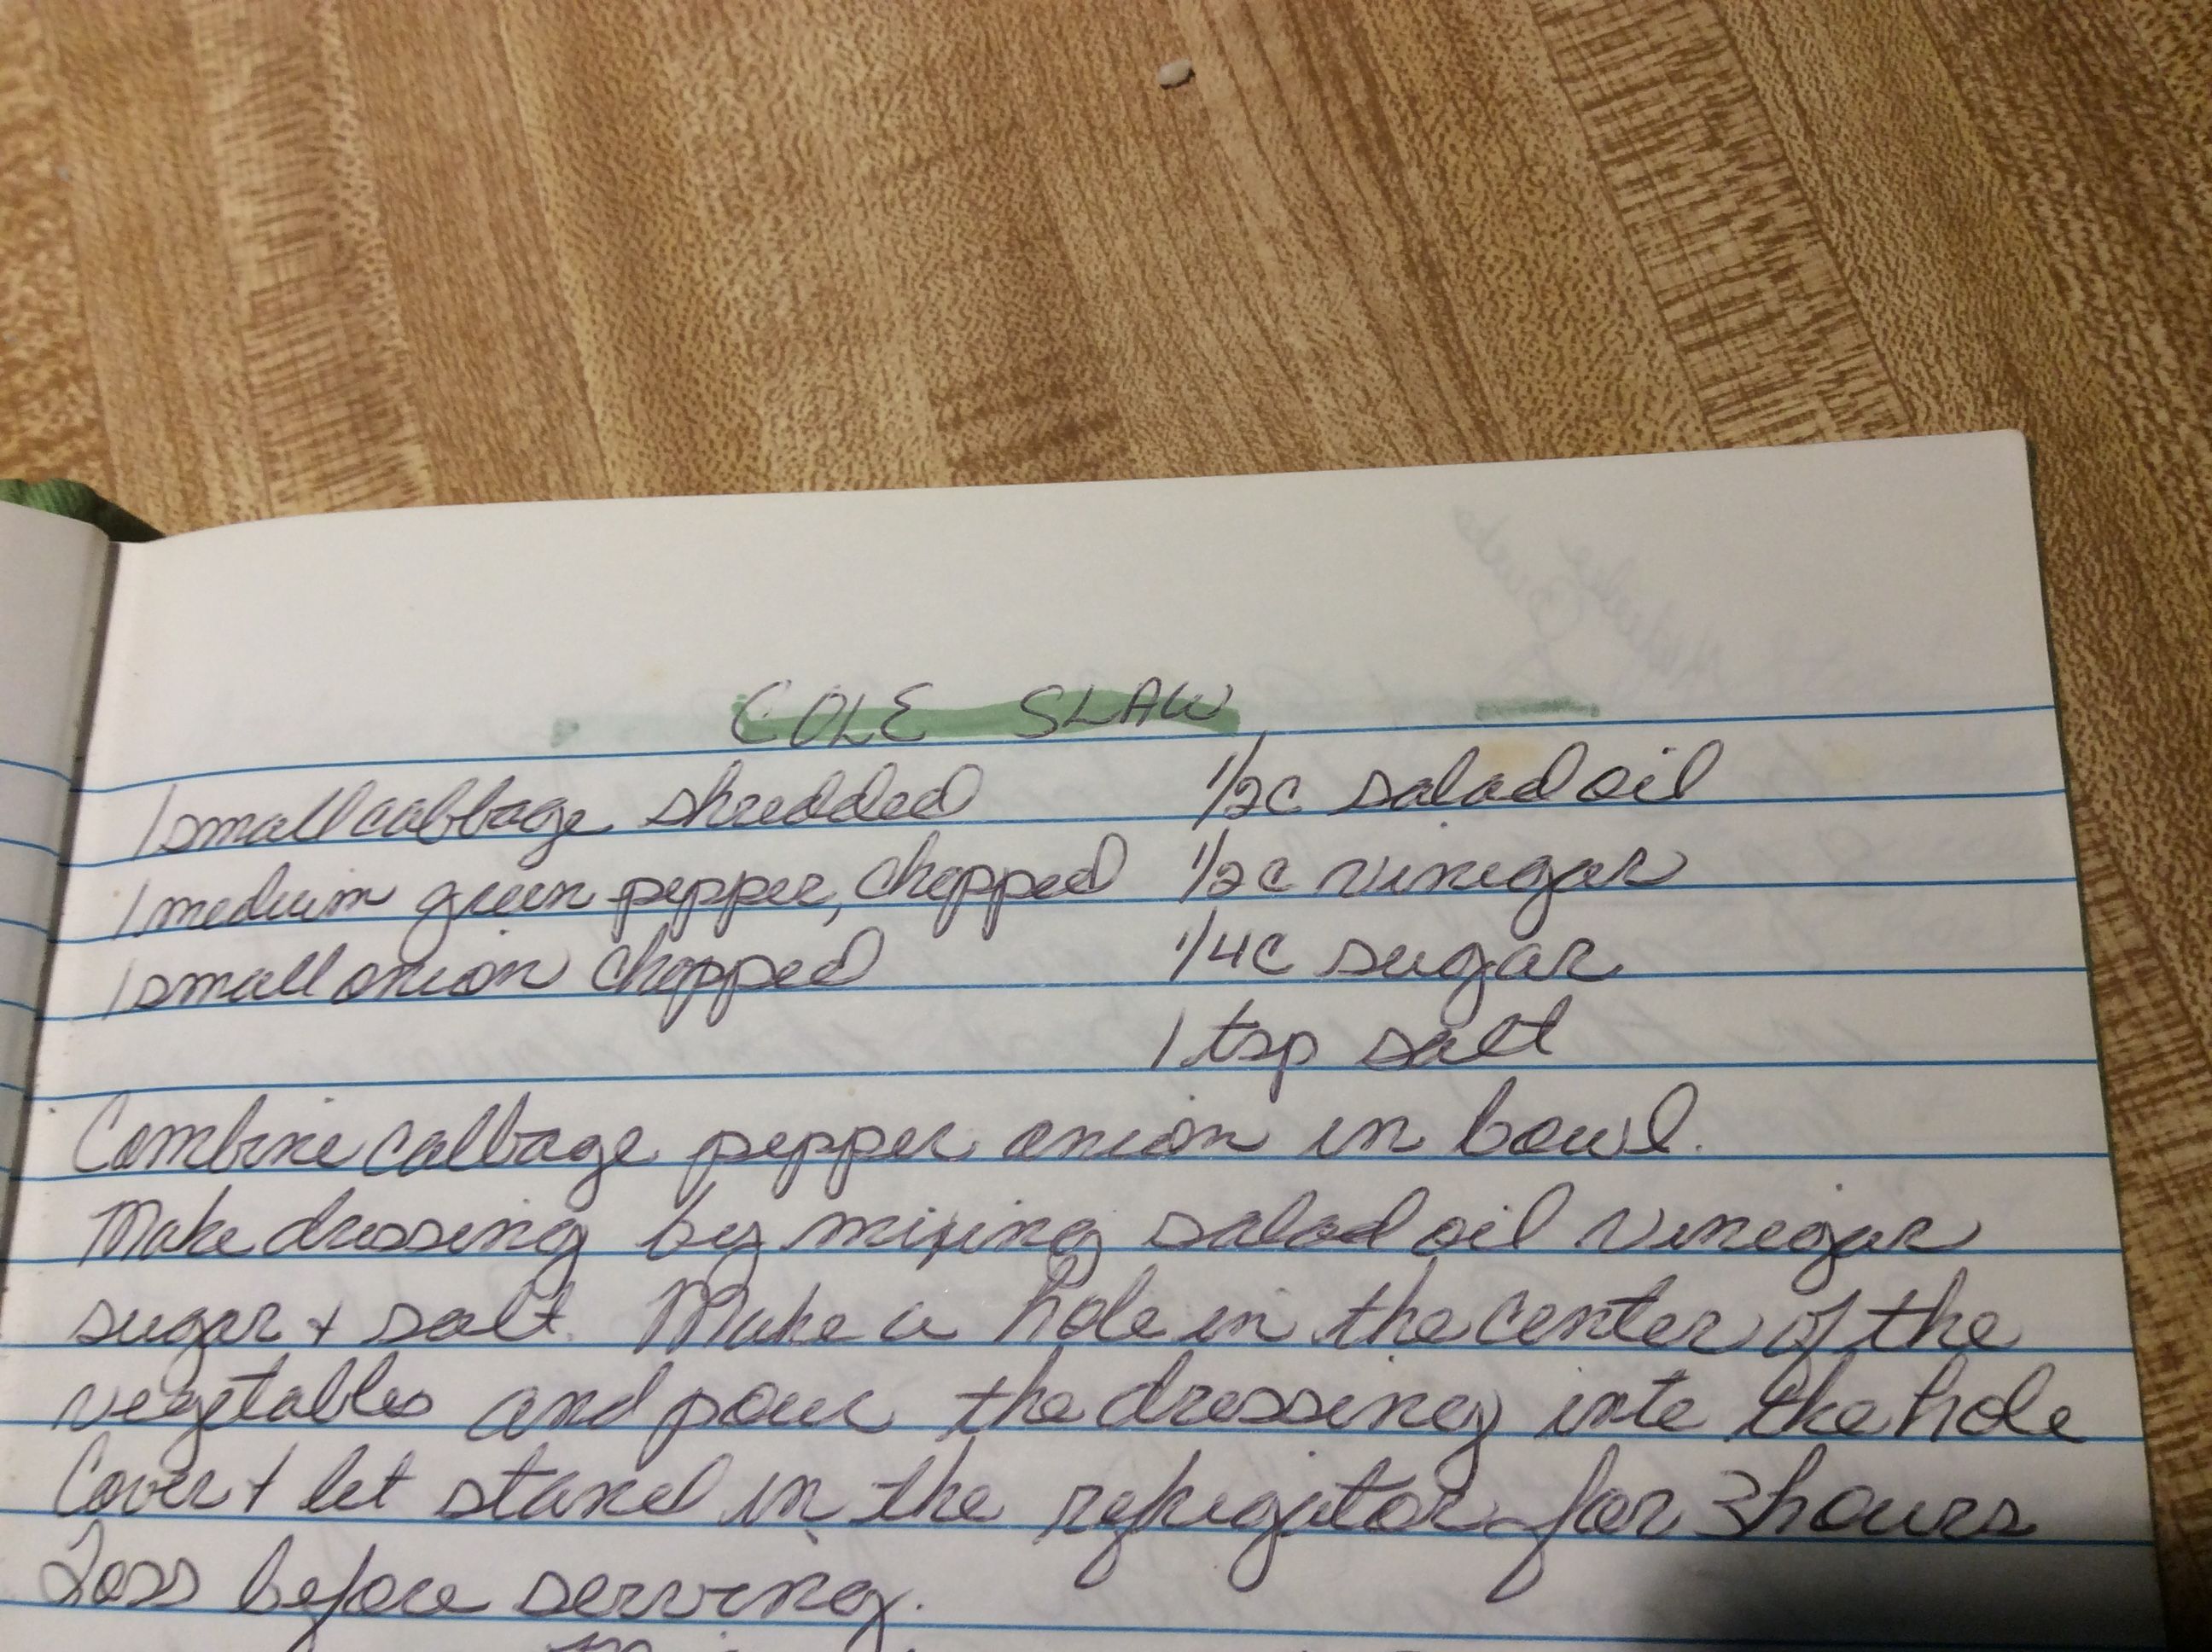 COLE SLAW
1 small cabbage shredded 1/2 c salad oil
1 medium green pepper, chopped 1/2 c vinegar
1 small onion chopped 1/4 c sugar
1 tsp salt
Combine cabbage pepper onion in bowl.
Make dressing by mixing salad oil vinegar
sugar + salt. Make a hole in the center of the
vegetables and pour the dressing into the hole
Cover + let stand in the refrigator for 3 hours
Toss before serving.